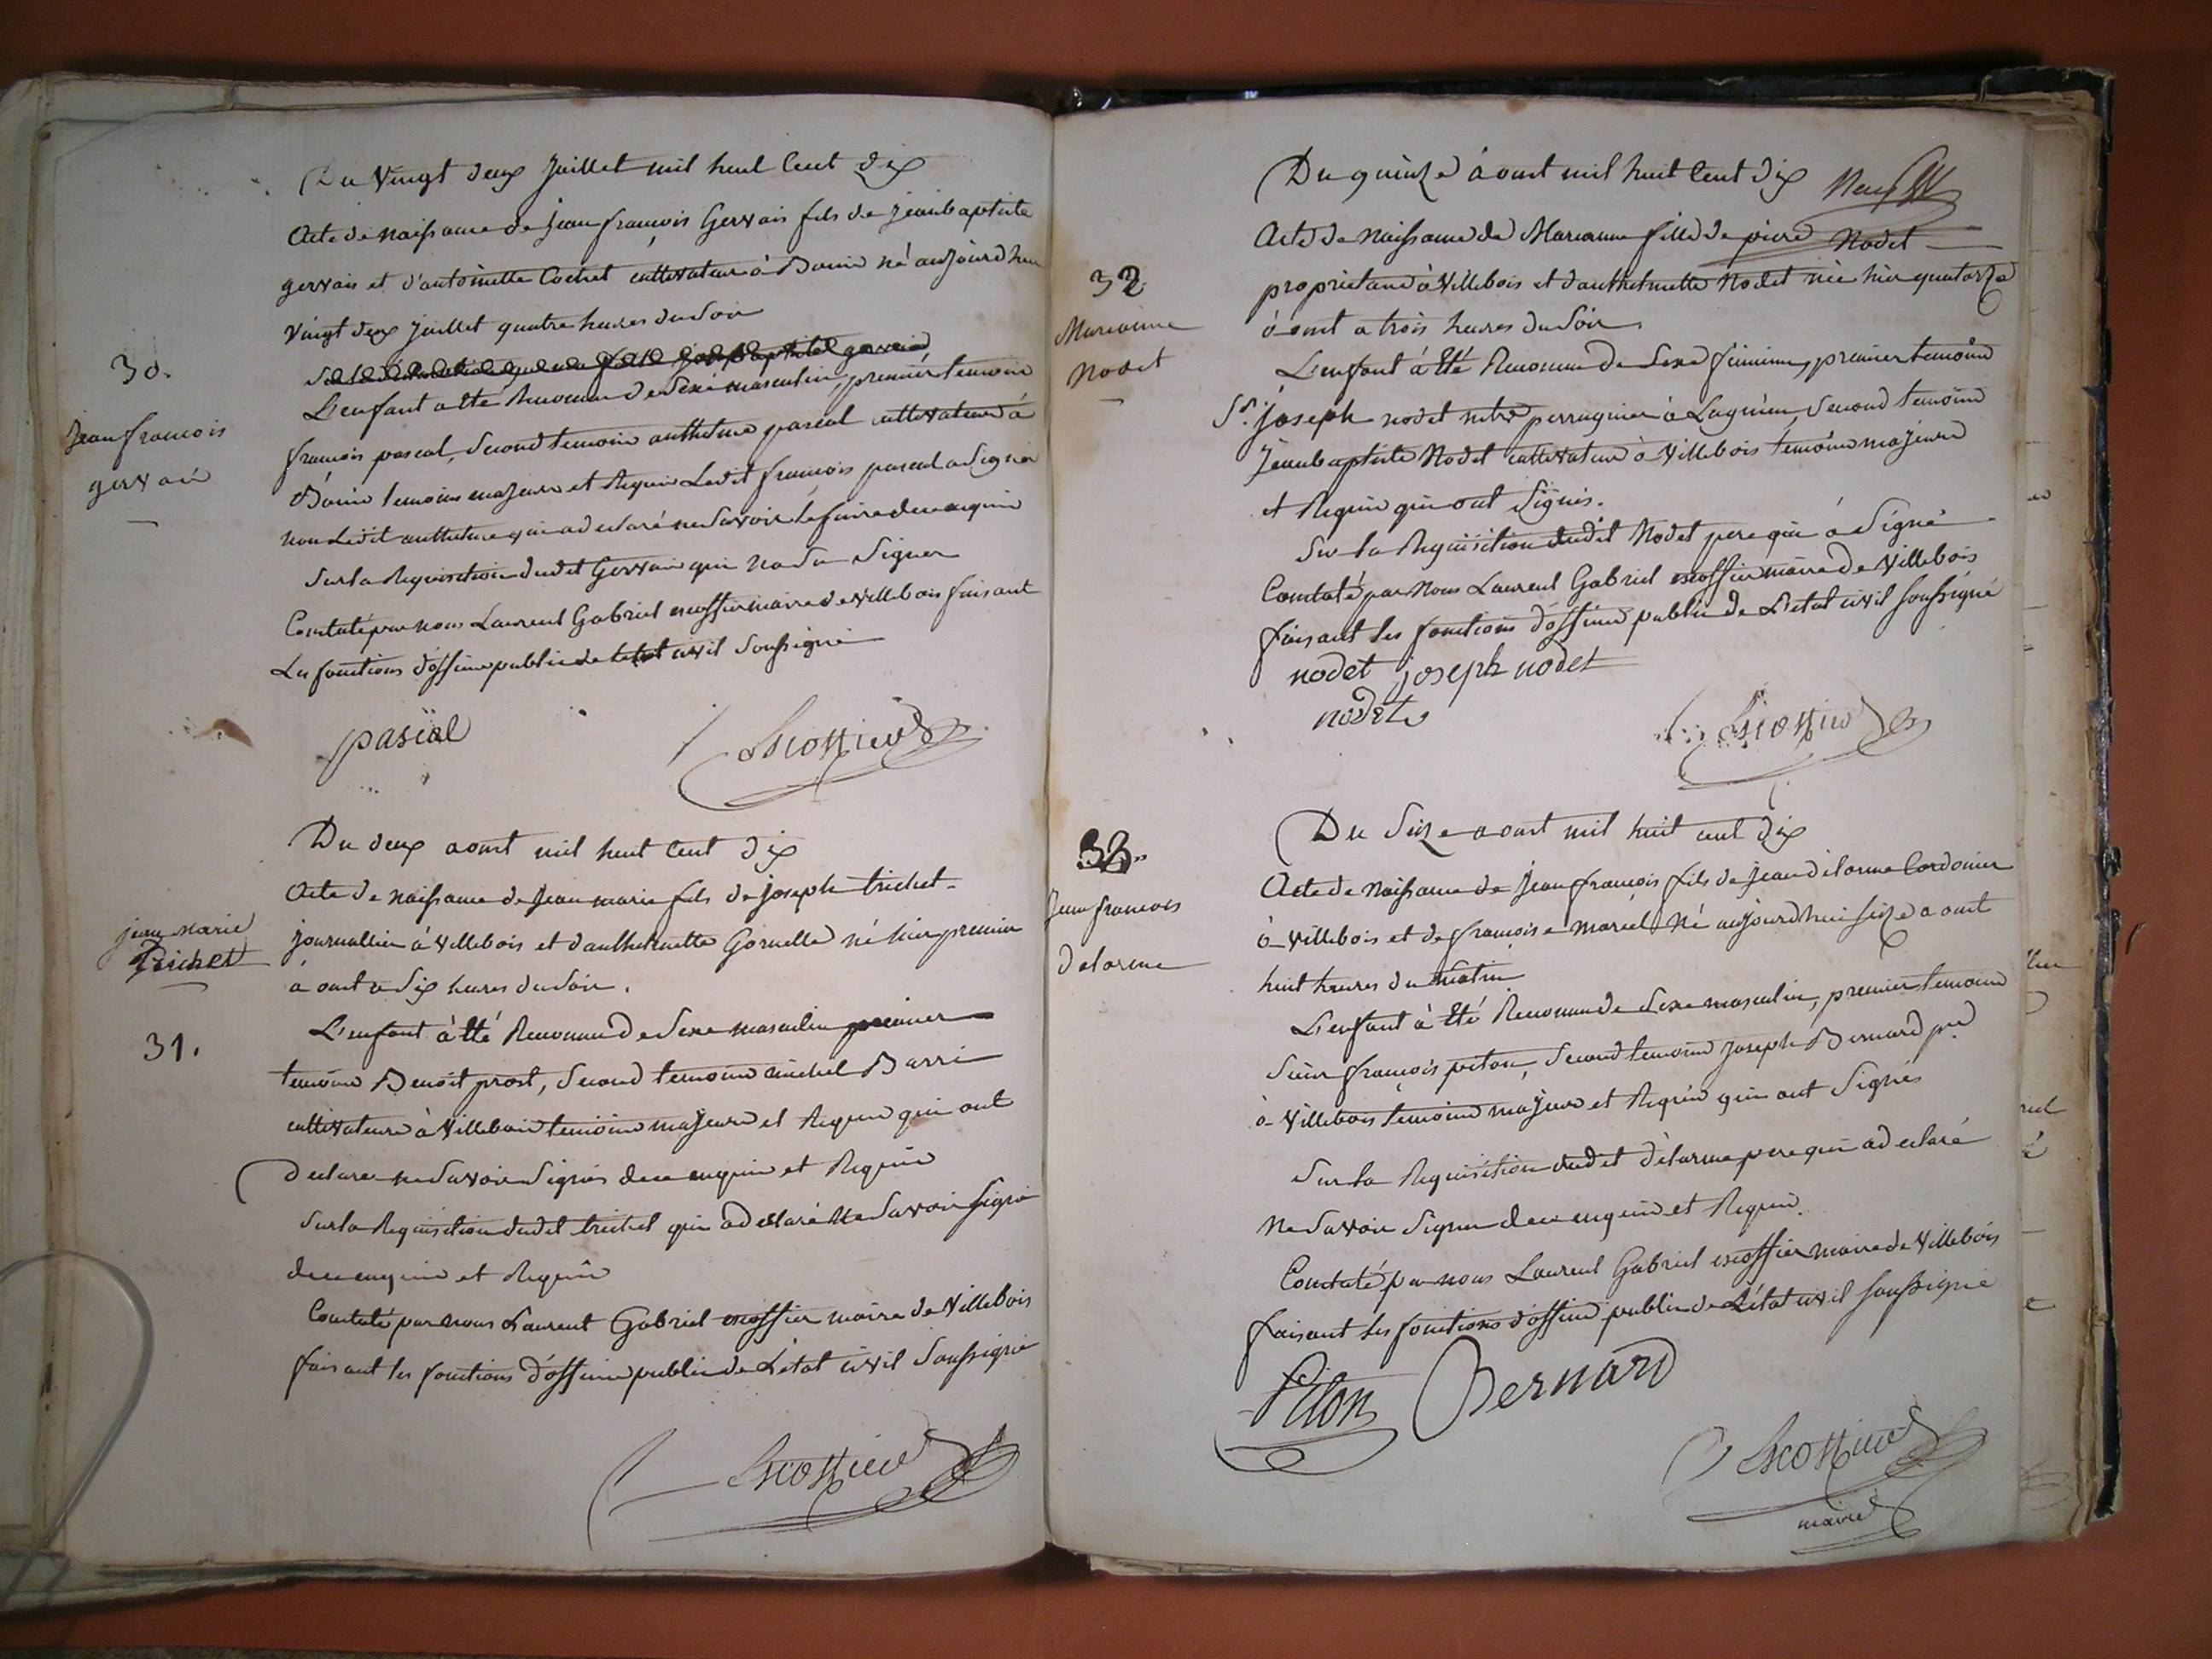 Du vingt deux juillet mil huit cent dix
Acte de naissance de jean françois Gervais fils de jeanbaptiste
gervais et d'antoinette Cochet cultivateur à Bouis né aujourd'hui
vingt deux juillet quatre heures du soir
30.
jean francois
gervais
L'enfant a été Reconnu de Sexe masculin, premier temoin
francois pascal, Second temoin anthelme pascal cultivateurs à
Bouis temoins majeurs et Requis Ledit françois pascal a Signé
non Ledit anthelme qui a declaré ne Savoir le faire de ce enquis
Sur la Requisition dudit Gervais qui na Su Signer
Constaté par nous Laurent Gabriel escoffier maire de villebois faisant
Les fonctions d'officier public de letat civil Soussigné
pascal Escoffier
Du deux aoust mil huit Cent dix
Acte de naissance de Jean marie fils de joseph trichet
jean Marie
Trichet
journallier à Villebois et d'anthelmette Gornelle né hier premier
aoust a Six heures du Soir.
31.
L'enfant à été Reconnu de Sexe masculin premier
temoin Benoit prost, Second temoin michel Barri
cultivateurs à Villebois temoins majeurs et Requis qui ont
declaré ne Savoir Signer de ce enquis et Requis
Sur la Requisition dudit trichet qui a declaré Ne Savoir Signer
de ce enquis et Requis
Constaté par nous Laurent Gabriel escoffier maire de Villebois
faisant les fonctions d'officier public de L'état civil Soussigné
Escoffier
Du quinze aoust mil huit Cent dix
Acte de Naissance de Marianne fille de pierre Nodet
32
Marianne
Nodet
proprietaire à Villebois et d'anthelmette Nodet née hier quatorze
aoust a trois heures du Soir.
L'enfant à été Reconnu de Sexe féminin, premier temoin
Sr. joseph nodet perruquier à Lagnieu, Second temoin
Jeanbaptiste Nodet cultivateur à Villebois temoins majeurs
et Requis qui ont Signés.
Sur la Requisition dudit Nodet pere qui à Signé
Constaté par Nous Laurent Gabriel escoffier maire de Villebois
faisant les fonctions d'officier public de L'etat civil Soussigné
nodet joseph nodet
nodet Escoffier
Du Seize aoust mil huit cent dix
33
Jean francois
delorme
Acte de Naissance de Jean françois fils de Jean délorme Cordonier
à Villebois et de françoise marcel Né aujourdhui Seize aoust
huit heures du Matin
L'enfant à été Reconnu de Sexe masculin, premier temoin
Sieur françois piton, Second temoin Joseph Bernard pre
à Villebois temoins majeurs et Requis qui ont Signés
Sur la Requisition dudit délorme pere qui a declaré
Ne Savoir Signer de ce enquis et Requis.
Constaté par nous Laurent Gabriel escoffier maire de Villebois
faisant les fonctions d'officier public de L'état civil Soussigné
Piton Bernard
Escoffier
maire